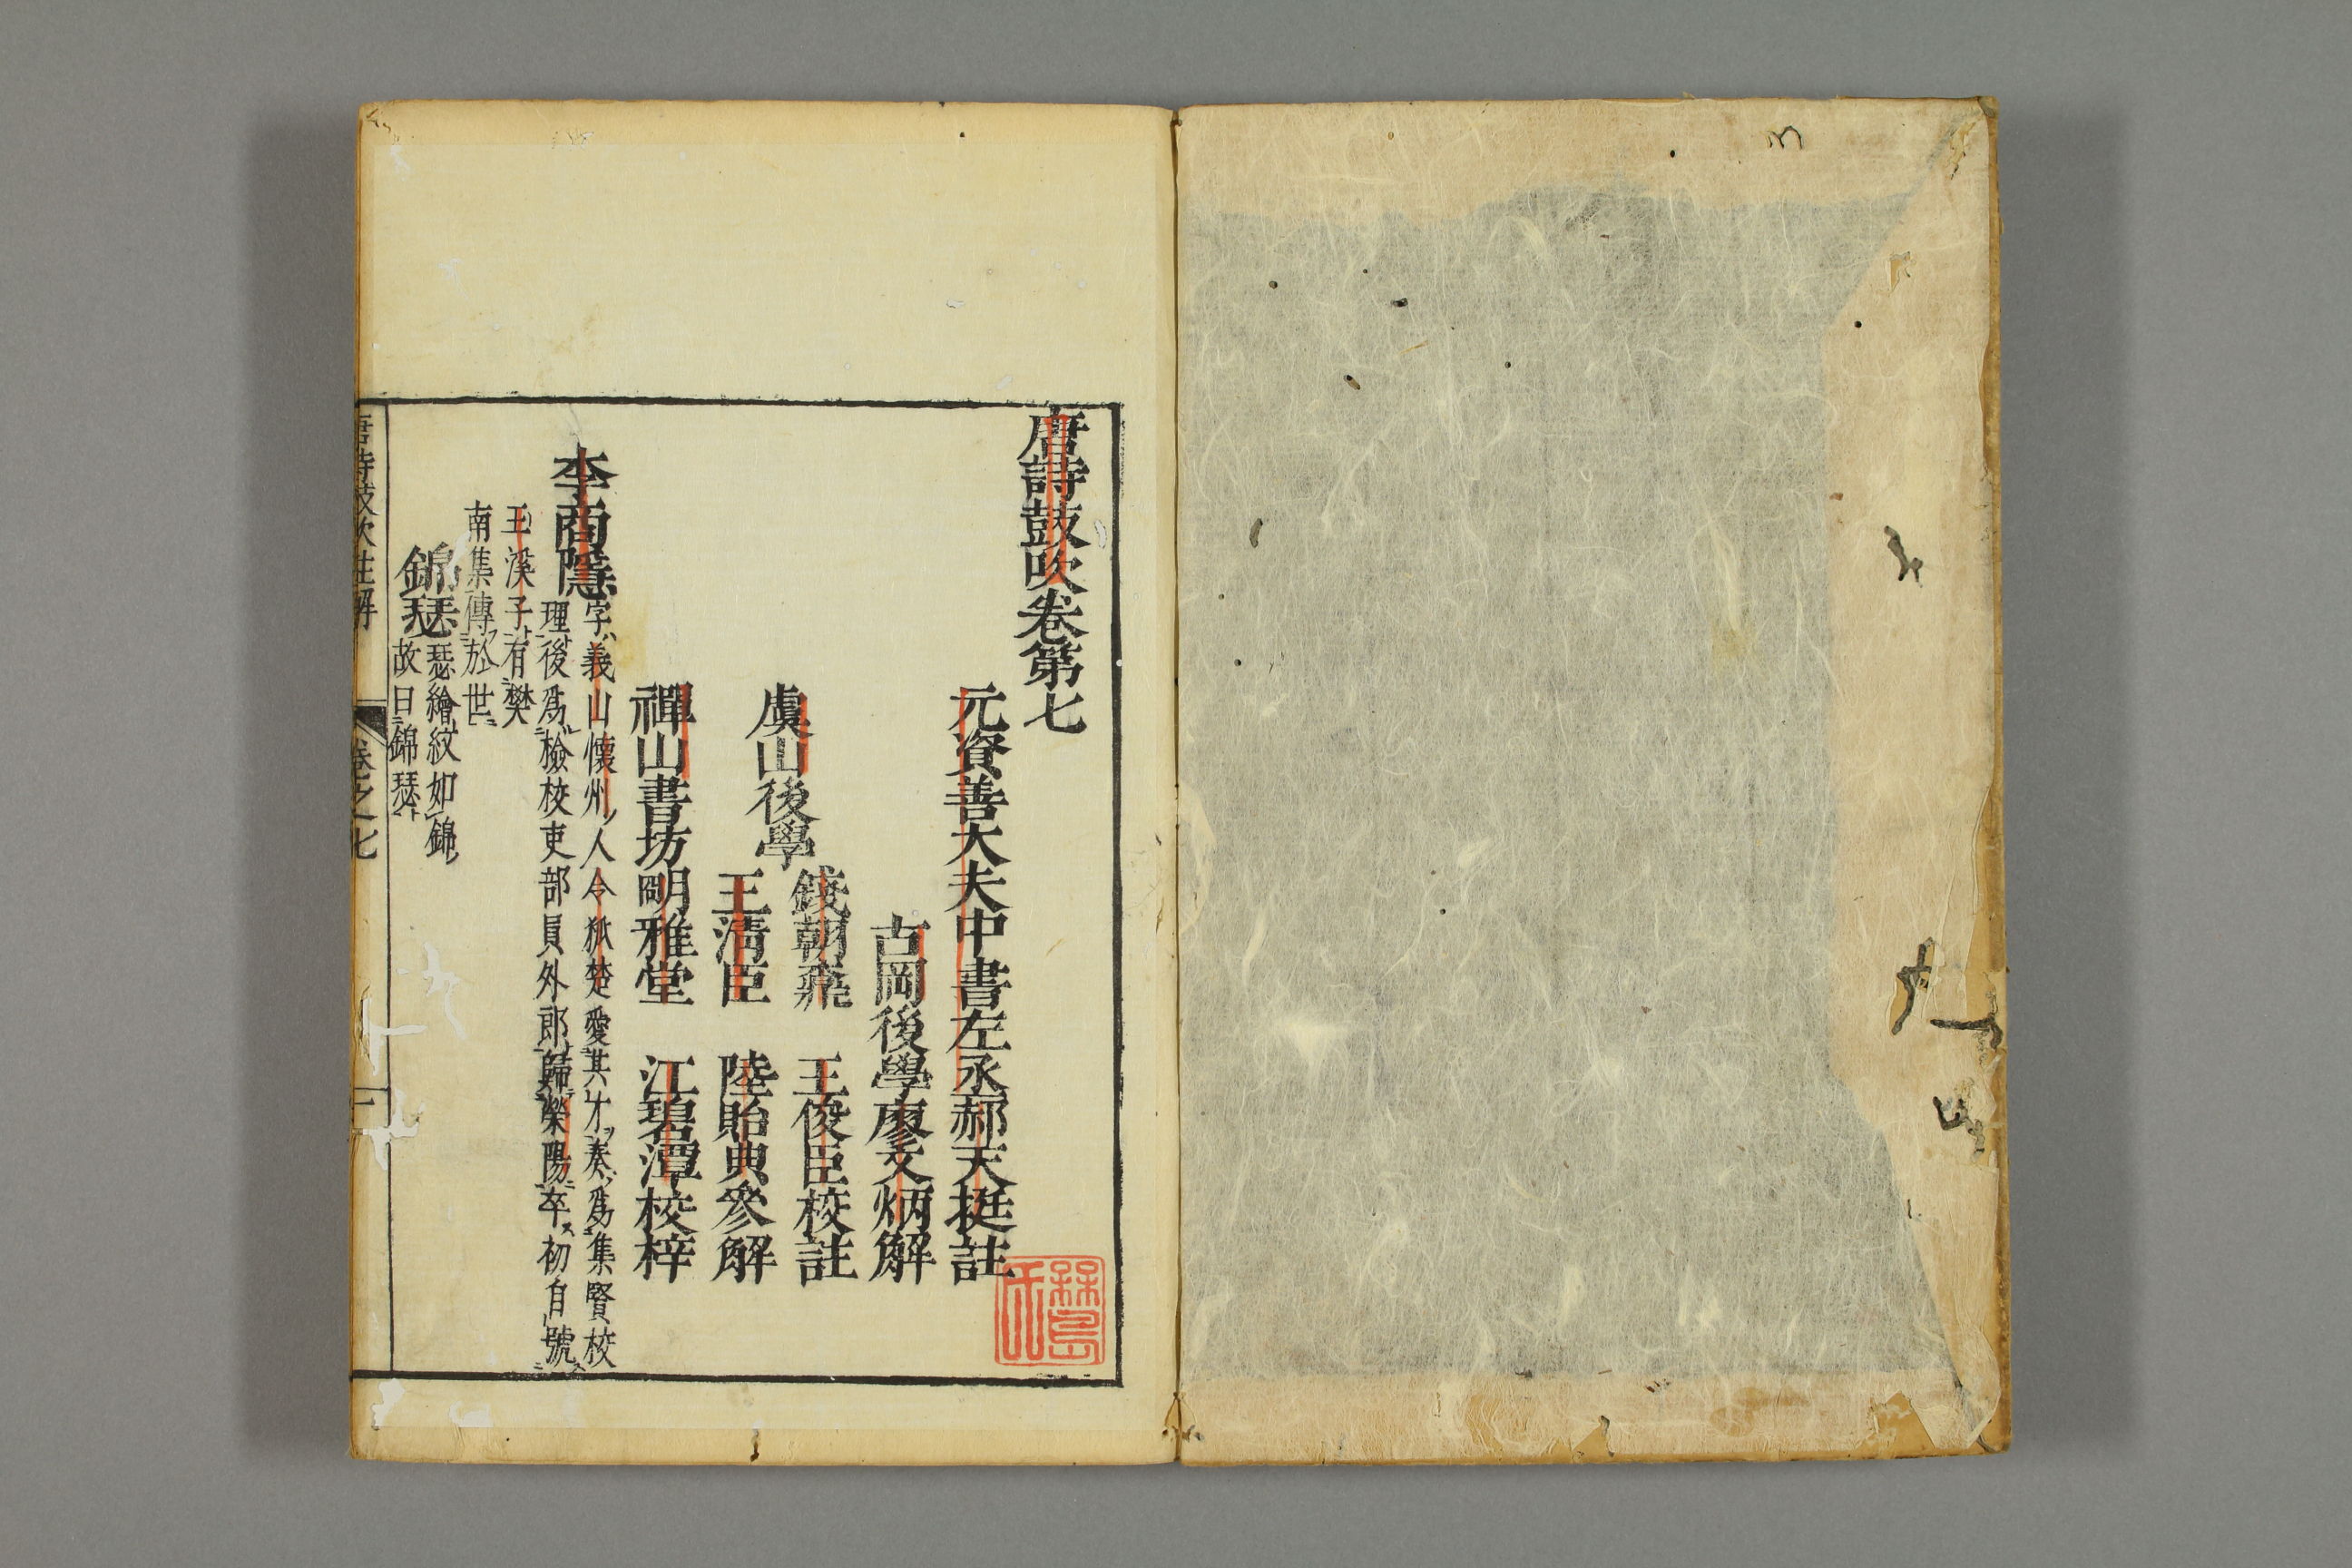 唐詩鼓吹卷第七
元資善大夫中書左丞郝天挺註
古岡後學廖文炳解
虞山後學
錢朝鼒 王俊臣校註
王淸臣 陸貽典參解
禪山書坊 明雅堂 江碧潭校梓
李商隱
字義山懷州人令狐楚愛其才奏爲集賢校
理後爲檢校吏部員外郎歸榮陽卒初自號
玉溪子有樊
南集傳於世
錦瑟
瑟繪紋如錦
故曰錦瑟
唐詩鼓吹註解 卷之七 一